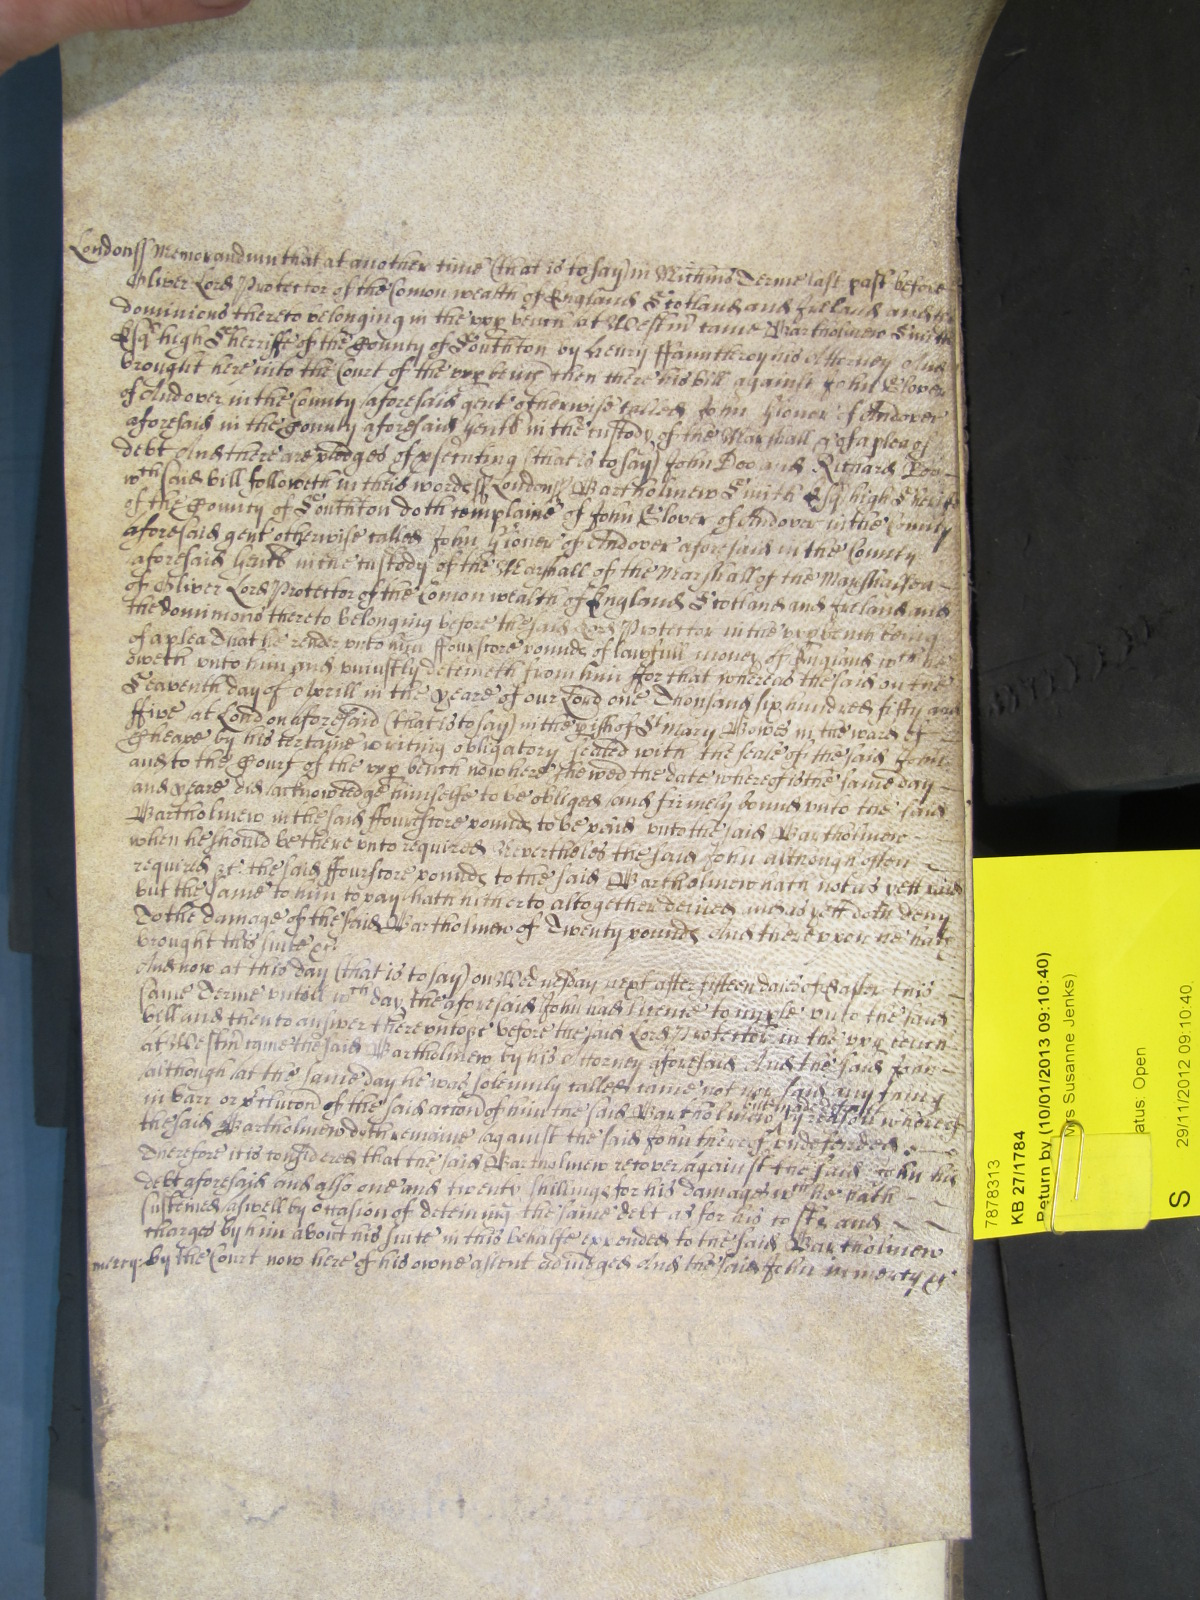 London ss Memorandum that at another time (that is to say) in Michms Terme last past before
Oliver Lord Protector of the Comon wealth of England Scotland and Ireland and the
dominions thereto belonging in the vpp bench at Westm came Bartholmew Smith
Esqr high Sherriffe of the County of Southton by Henry ffauntleroy his Attorney And
brought here into the Court of the vpp bench then there his bill against John Glover
of Andover in the County aforesaid gent otherwise called John Glover of Andover
aforesaid in the County aforesaid gent in the custody of the Marshall &c of a plea of
debt And there are pledges of psecuting (that is to say) John Doo and Richard Roo
wch said bill followeth in theis words ss London ss Bartholmew Smith Esqr high Sheriffe
of the County of Southton doth complaine of John Glover of Andover in the County
aforesaid gent otherwise called John Glover of Andover aforesaid in the County
aforesaid gent in the custody of the Marshall of the Marshall of the Marshalsea
of Oliver Lord Protector of the Comon wealth of England Scotland and Ireland and
the dominions thereto belonging before the said Lord Protector in the vpp bench being
of a plea that he render vnto him ffourscore pounds of lawfull money of England wch he
oweth vnto him and vniustly deteineth from him ffor that whereas the said on the
Seaventh day of Aprill in the yeare of our Lord one Thousand six hundred fifty and
ffive at London aforesaid (that is to say) in the pish of St Mary Bowes in the ward of
Cheape by his certaine writing obligatory sealed with the seale of the said John
and to the Court of the vpp bench now here shewed the date whereof is the same day
and yeare did acknowledge himselfe to be obliged and firmely bound vnto the said
Bartholmew in the said ffourscore pounds to be paid vnto the said Bartholmew
when he should be there vnto required Nevertheles the said John although often
required &c the said ffourscore pounds to the said Bartholmew hath not as yett paid
but the same to him to pay hath hitherto altogether denied and as yett doth deny
To the damage of the said Bartholmew of Twenty pounds And there vpon he hath
brought this suite &c
And now at this day (that is to say) on Wednesday next after fifteen daies of Easter this
same Terme vntill wch day the aforesaid John had licence to imple vnto the said
bill and then to answer there vnto &c before the said Lord Protector in the vpp bench
at Westm came the said Bartholmew by his Attorney aforesaid And the said John
although at the same day he was solemnly called came not nor said any thing
in barr or of the said action of him the said Bartholmew by reason whereof
the said Bartholmew doth remaine against the said John thereof vndefended
Therefore it is considered that the said Bartholmew recover against the said John his
debt aforesaid and also one and twenty shillings for his damages wch he hath
susteined aswell by occasion of deteining the same debt as for his costs and
charges by him about his suite in this behalfe expended to the said Bartholmew
mercy: by the Court now here of his owne assent adiudged And the said John in mercy &c
7878313
KB 27/1784
Return by (10/01/2013 09:10:40)
Mrs Susanne Jenks)
atus: Open
29/11/2012 09:10:40
S